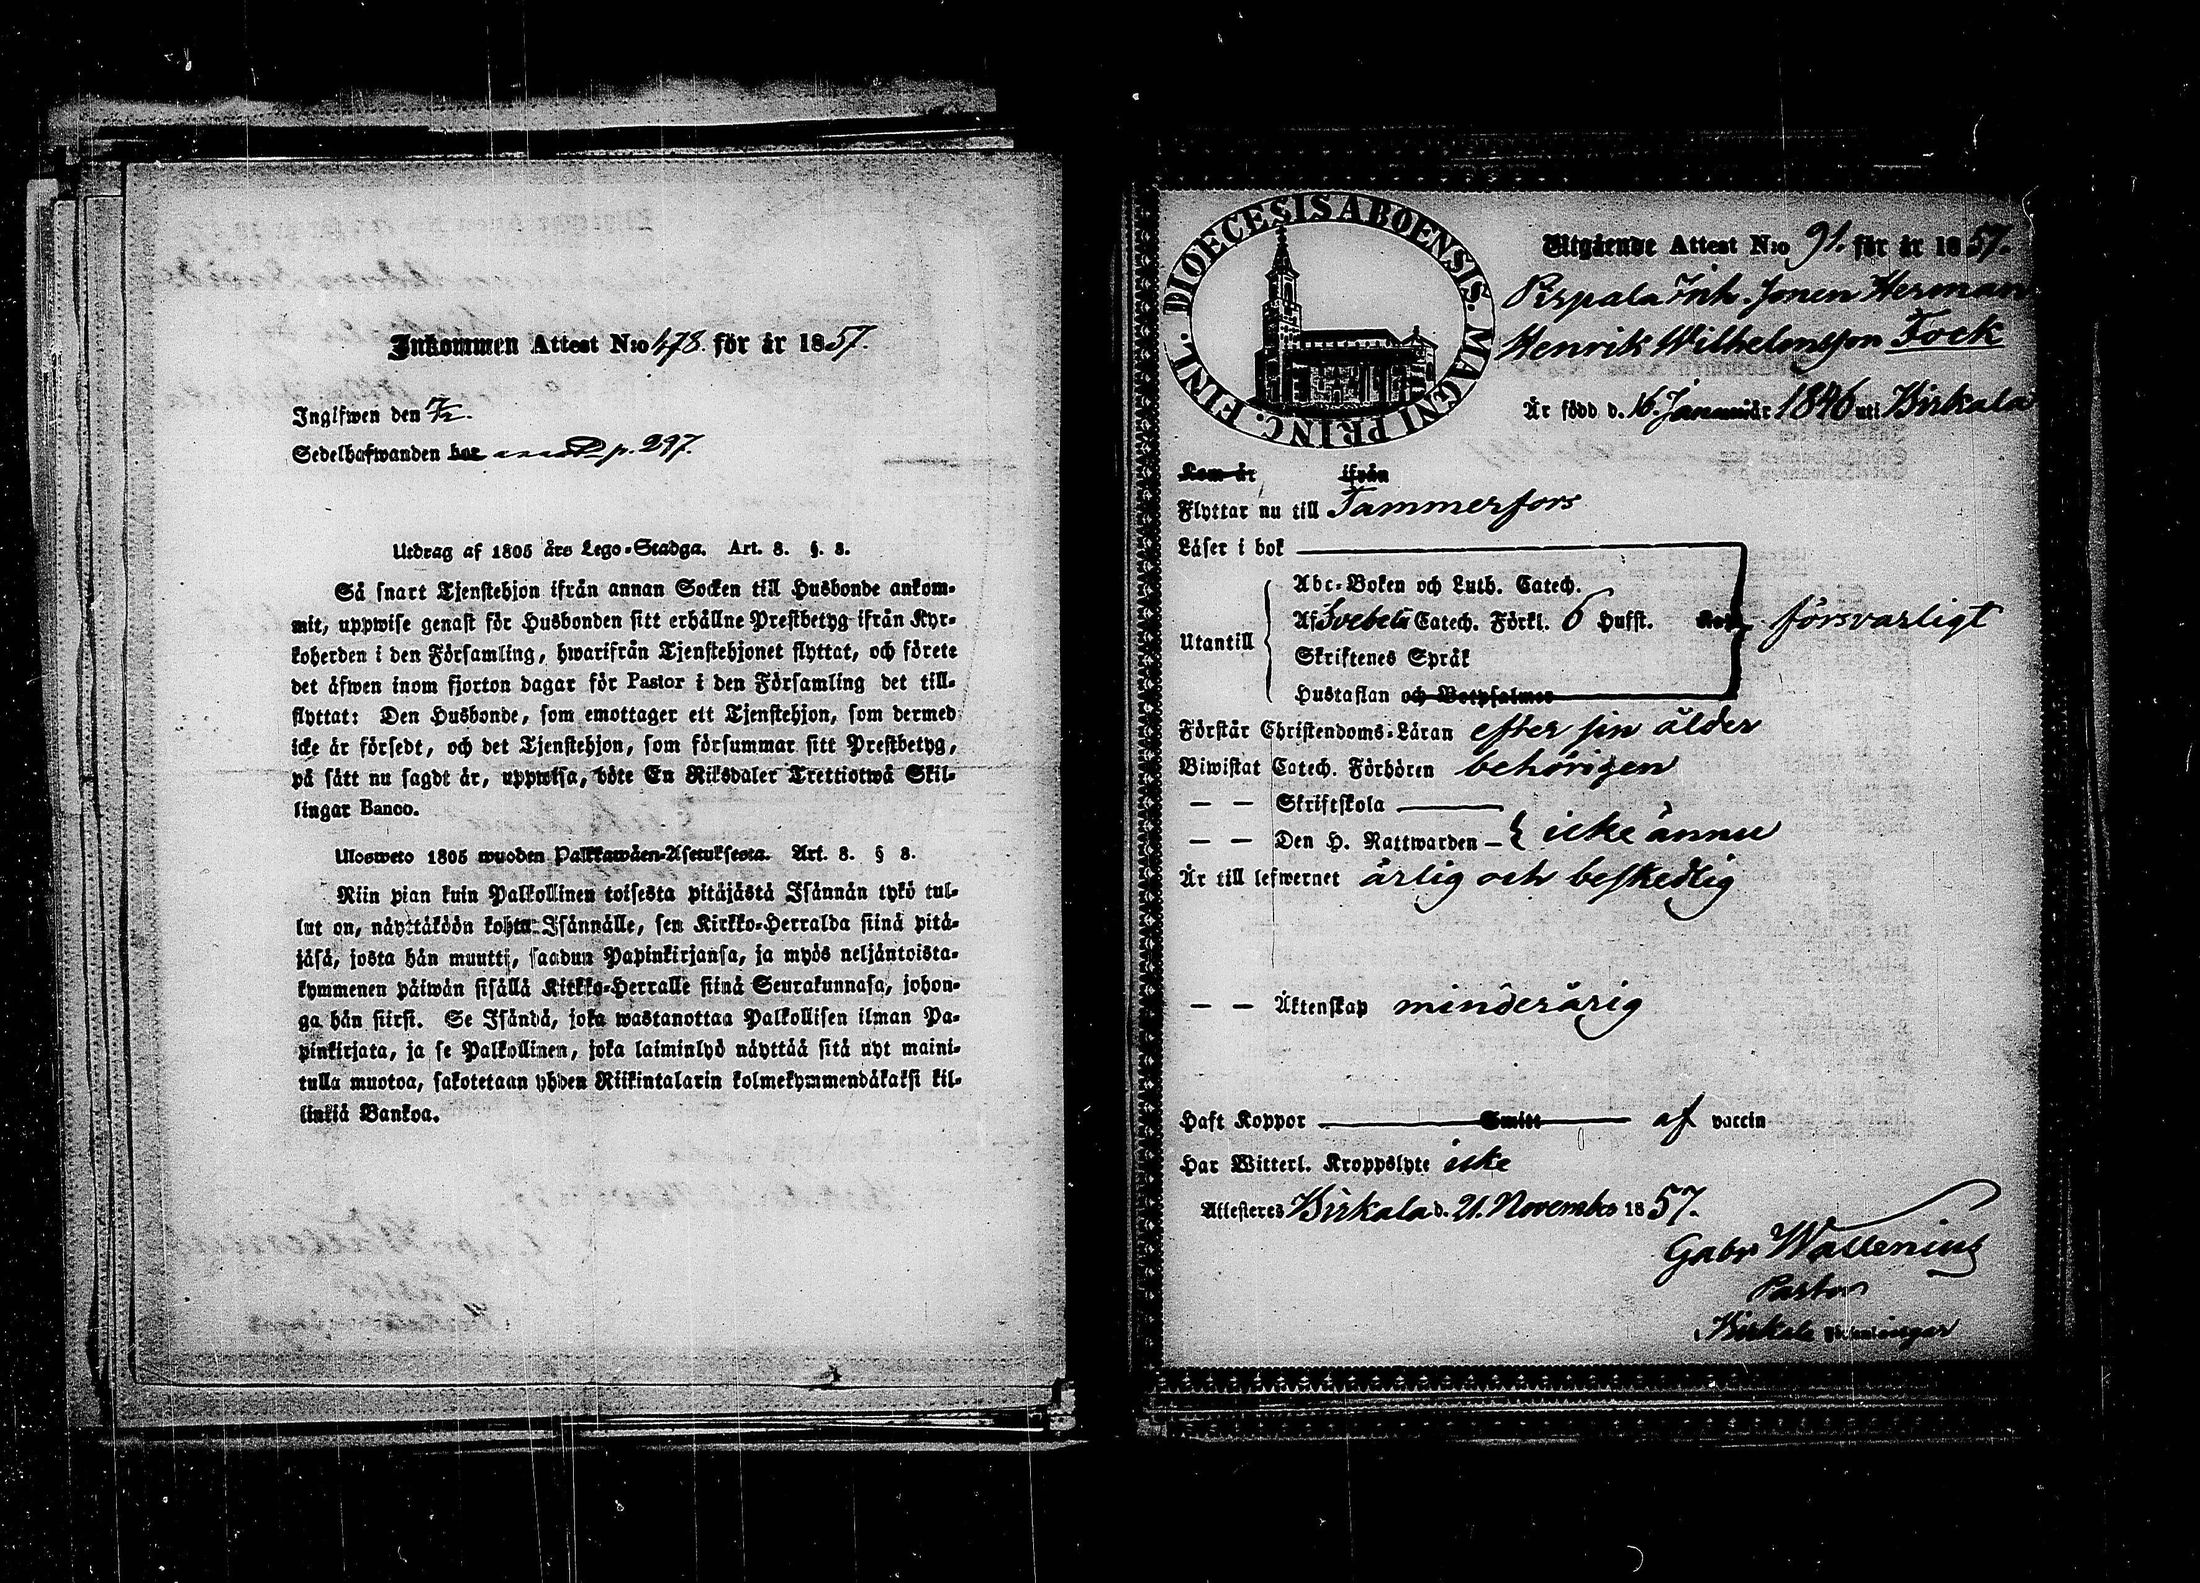 Inkommen Attest N:o 478. för år 1857.
Inglfwen den 7/12.
Sedelhafwanden har p. 297.
Utdrag af 1805 års Lego-Stadga. Art. 8. §. 8.
Så snart Tjenstehjon ifrån annan Socken till Husbonde ankom-
mit, uppwise genast för Husbonden sitt erhållne Prestbetyg ifrån Kyr-
koherden i den Församling, hwarifrån Tjenstehjonet flyttat, och förete
det äfwen inom fjorton dagar för Pastor i den Församling det till-
flyttat: Den Husbonde, som emottager ett Tjenstehjon, som dermed
icke är försedt, och det Tjenstehjon, som försummar sitt Prestbetyg,
på sätt nu sagdt är, uppwisa, böte En Riksdaler Trettiotwå Skil-
lingar Banco.
Ulosweto 1805 wuoden Palkkawäen-Asetuksesta. Art. 8. § 8.
Niin pian kuin Palkollinen toisesta pitäjästä Isännän tykö tul-
lut on, näyttäköön kohta Isännälle, sen Kirkko-Herralda siinä pitä-
jäsä, josta hän muutti, saadun Papinkirjansa, ja myös neljäntoista-
kymmenen päiwän sisällä Kirkko-Herralle siinä Seurakunnasa, johon-
ga hän siirsi. Se Isändä, joka wastanottaa Palkollisen ilman Pa-
pinkirjata, ja se Palkollinen, joka laiminlyö näyttää sitä nyt maini-
tulla muotoa, sakotetaan yhden Riikintalarin kolmekymmendäkaksi kil-
linkiä Bankoa.
DIOECESIS ABOENSIS. MAGNI PRINC. FINL.
Utgående Attest N:o 91. för år 1857.
Pispala Inh. Sonen Herman
Henrik Wilhelmsson Fock
Är född d. 16. Januari år 1846 uti Birkala
Kom år ifrån
Flyttar nu till Tammerfors
Läser i bok
Abc-Boken och Luth. Catech.
Af Svebelii Catech. Förkl. 6 Hufst. försvarligt
Utantill
Skriftenes Språk
Hustaflan och Botpsalmer
Förstår Christendoms-Läran efter sin ålder
Biwistat Catech. Förhören behörigen
— — Skriftskola
— — Den H. Nattwarden — icke ännu
Är till lefwernet ärlig och beskedlig
— — Äktenskap minderårig
Haft Koppor Smitt af vaccin
Har Witterl. Kroppslyte icke
Attesteras Birkala d. 21. November 1857.
Gabr Wallenius
Pastor
i Birkala